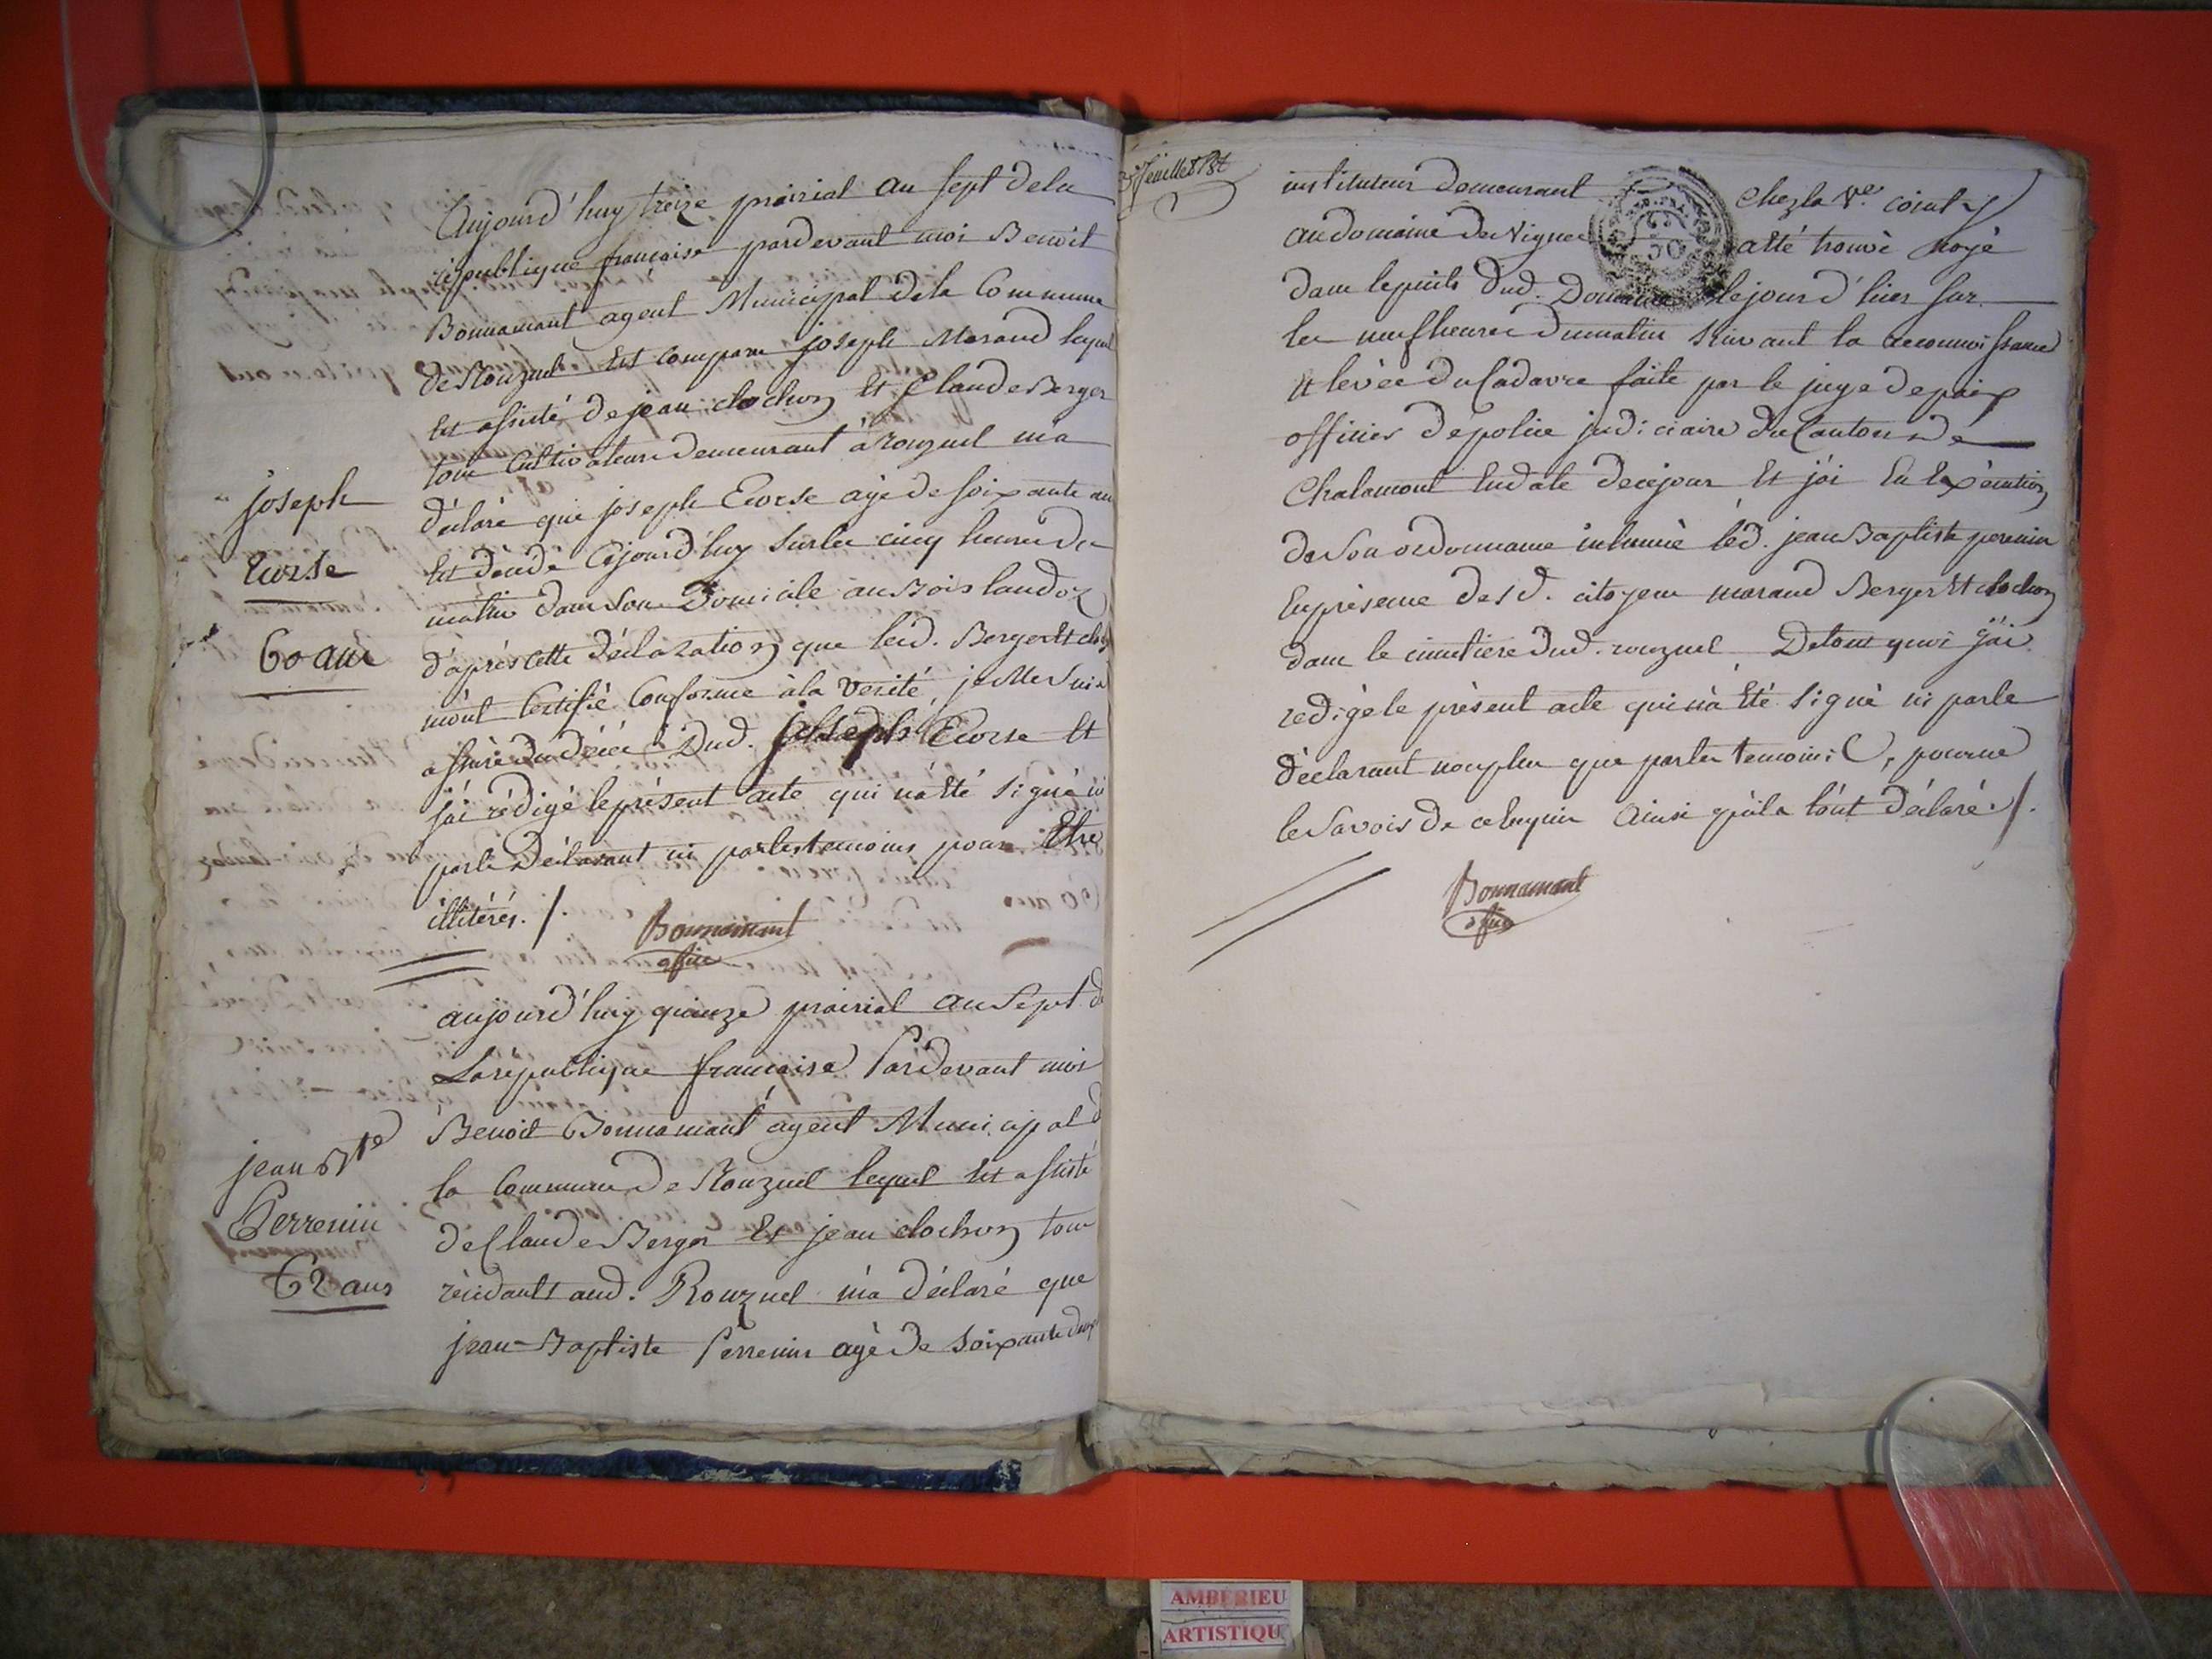 Aujourd'huy treize prairial an sept dela
république française pardevant moi Benoit
Bonnamant agent Municipal dela Commune
de Rouzuel Est comparu joseph Morand lequel
Est assisté de jean clochon Et Claude Berger
tous Cultivateurs demeurant à rouzuel m'a
déclaré que joseph Ecorse agé de soixante ans
joseph
Ecorse
60 ans
Est décédé cejourd'huy sur les cinq heures du
matin dans son Domicile au Bois landoz
d'après cette déclaration que lesd. Berger Et cloch
m'ont Certifié Conforme à la verité, je me suis
assuré du décéé Dud. joseph Ecorse Et
j'ai rédigé le présent acte qui n'a Eté signé ni
par le Déclarant ni par les temoins pour Etre
illitérés. /.
Bonnamant
offier
aujourd'huy quinze prairial an sept de
La république française Pardevant moi
Benoit Bonnamant agent Municipal d
la Commune de Rouzuel lequel Est assisté
de Claude Berger Et jean clochon tous
résidants aud. Rouzuel m'a déclaré que
jean Bte
Perrenin
62 ans
jean-Baptiste Perrenin agé de soixante deux
3e feuillet
instituteur demeurant chez la Ve. cointy
au domaine des Vignes a Eté trouvé noyé
dans le puits dud. Domaine le jour d'hier sur
les neuf heures du matin suivant la reconnoissance
Et levée du Cadavre faite par le juge de paix
officier de police judiciaire du Canton de
Chalamont En date de ce jour Et j'ai En Exécution
de son ordonnance inhumé led. jean Baptiste perrenin
En présence desd. citoyens morand Berger Et clochon
dans le cimetière dud. rouzuel De tout quoi j'ai
redigé le présent acte qui n'a Eté signé ni par le
déclarant non plus que par les temoins, pour ne
le savoir de ce Enquis ainsi qu'ils l'ont déclaré ./.
Bonnamant
offier
AMBERIEU
ARTISTIQU